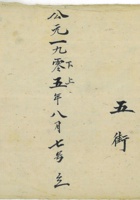 五街
公元一九零五年八月七号立
上下